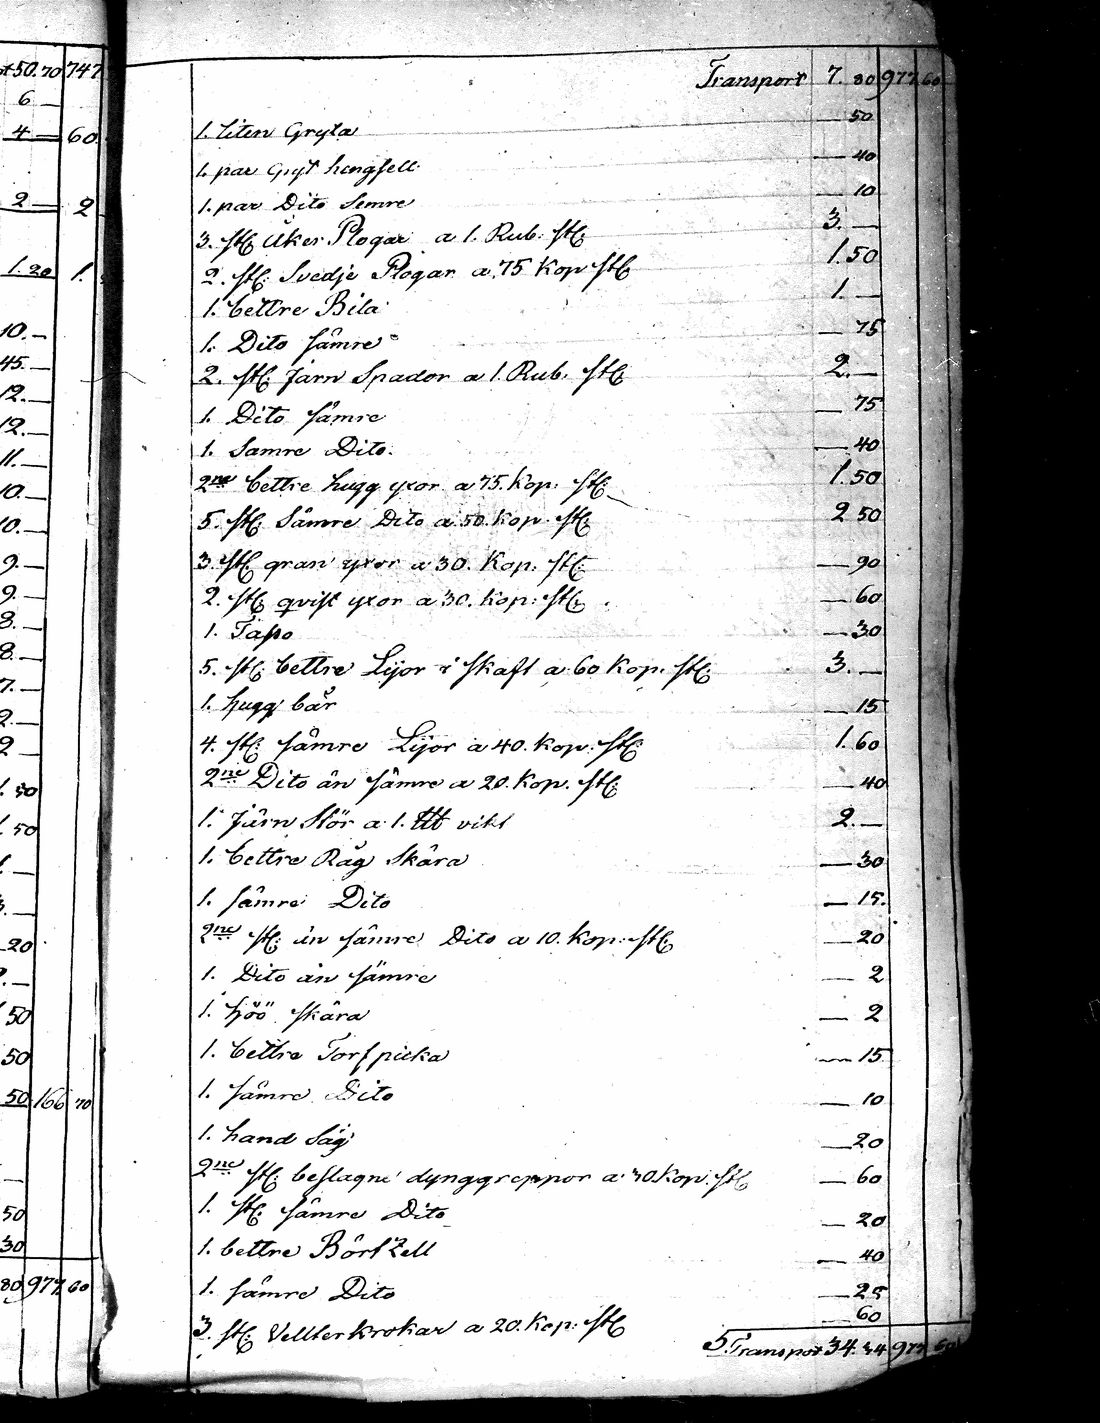 Transport 7. 80 977 60
1. liten Gryta — 50
1. par Gryt hengsell — 40
1. par Dito Semre — 10
3. st. Åker Plogar a 1. Rub. st. 3. —
2. st. Svedje Plogar a 75 Kop st. 1.50
1. bettre Bila 1. —
1. Dito sämre — 75
2. st. Jarn Spador a 1. Rub. st. 2. —
1. Dito sämre — 75
1. Samre Dito. — 40
2ne bettre hugg yxor a 75. Kop. st. 1.50
5. st. Sämre Dito a 50. Kop. st. 2 50
3. st. gran yxor a 30. Kop. st. — 90
2. st. qvist yxor a 30. Kop. st. — 60
1. — 30
5. st. bettre Lijor skaft a 60 Kop. st. 3. —
1. hugg bår — 15
4. st. sämre Lijor a 40. Kop. st. 1.60
2ne Dito än sämre a 20. Kop. st. — 40
1. Järn Stör a 1. vikt 2. —
1. bettre Råg Skära — 30
1. sämre Dito — 15.
2ne st. än sämre Dito a 10. Kop. st. — 20
1. Dito än sämre — 2
1. höö skära — 2
1. bettre Torf picka — 15
1. sämre Dito — 10
1. hand Såg — 20
2ne st. beslagne dynggreppor a 30 Kop. st. — 60
1. st. sämre Dito — 20
1. bettre — 40
1. sämre Dito — 25
3. st. Velterkrokar a 20. Kop. st. — 60
Transport 34. 34 977 60
50.70 747
6 —
4 — 60
2 — 2
1.20 1.
10. —
45. —
12. —
12. —
11. —
10. —
10. —
9. —
9. —
8. —
8. —
7. —
2. —
2 —
50
20
50
50
50 166 70
50
30
80 977 60